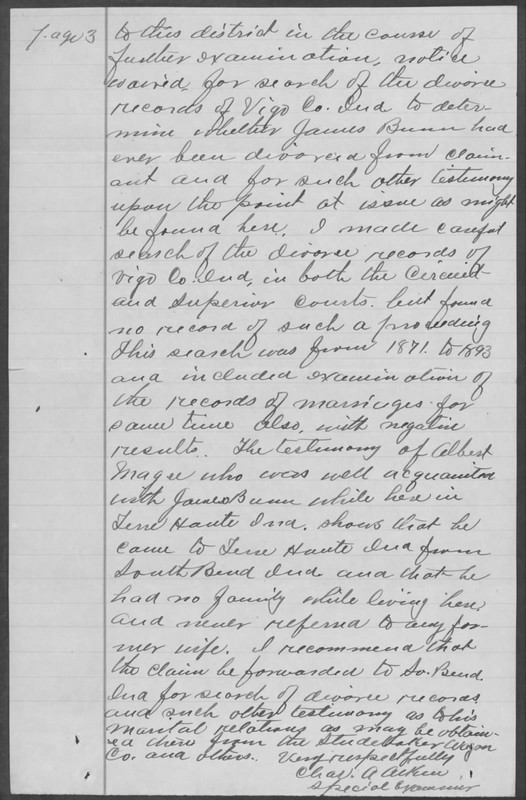 Page 3
to this district in the course of
further examination, notice
waived, for search of the divorce
records of Vigo Co. Ind to deter-
mine whether James Bunn had
ever been divorced from claim-
ant and for such other testimony
upon the point at issue as might
be found here. I made careful
search of the divorse records of
Vigo Co. Ind, in both the Circuit
and Superior Courts. but found
no record of such a proceeding
This search was from 1871. to 1893
and included examination of
the records of marriages for
same time also, with negative
results. The testimony of Albert
Magee who was well acquainted
with James Bunn while here in
Terre Haute Ind. shows that he
came to Terre Haute Ind from
South Bend Ind. and that he
had no family while living here,
and never referred to any for-
mer wife. I recommend that
the claim be forwarded to So. Bend.
Ind for search of divorce records
and such other testimony as to his
marital relations as may be obtain-
ed there from the Studebaker Wagon
Co. and others. Very respectfully
Chas. A
Special Examiner